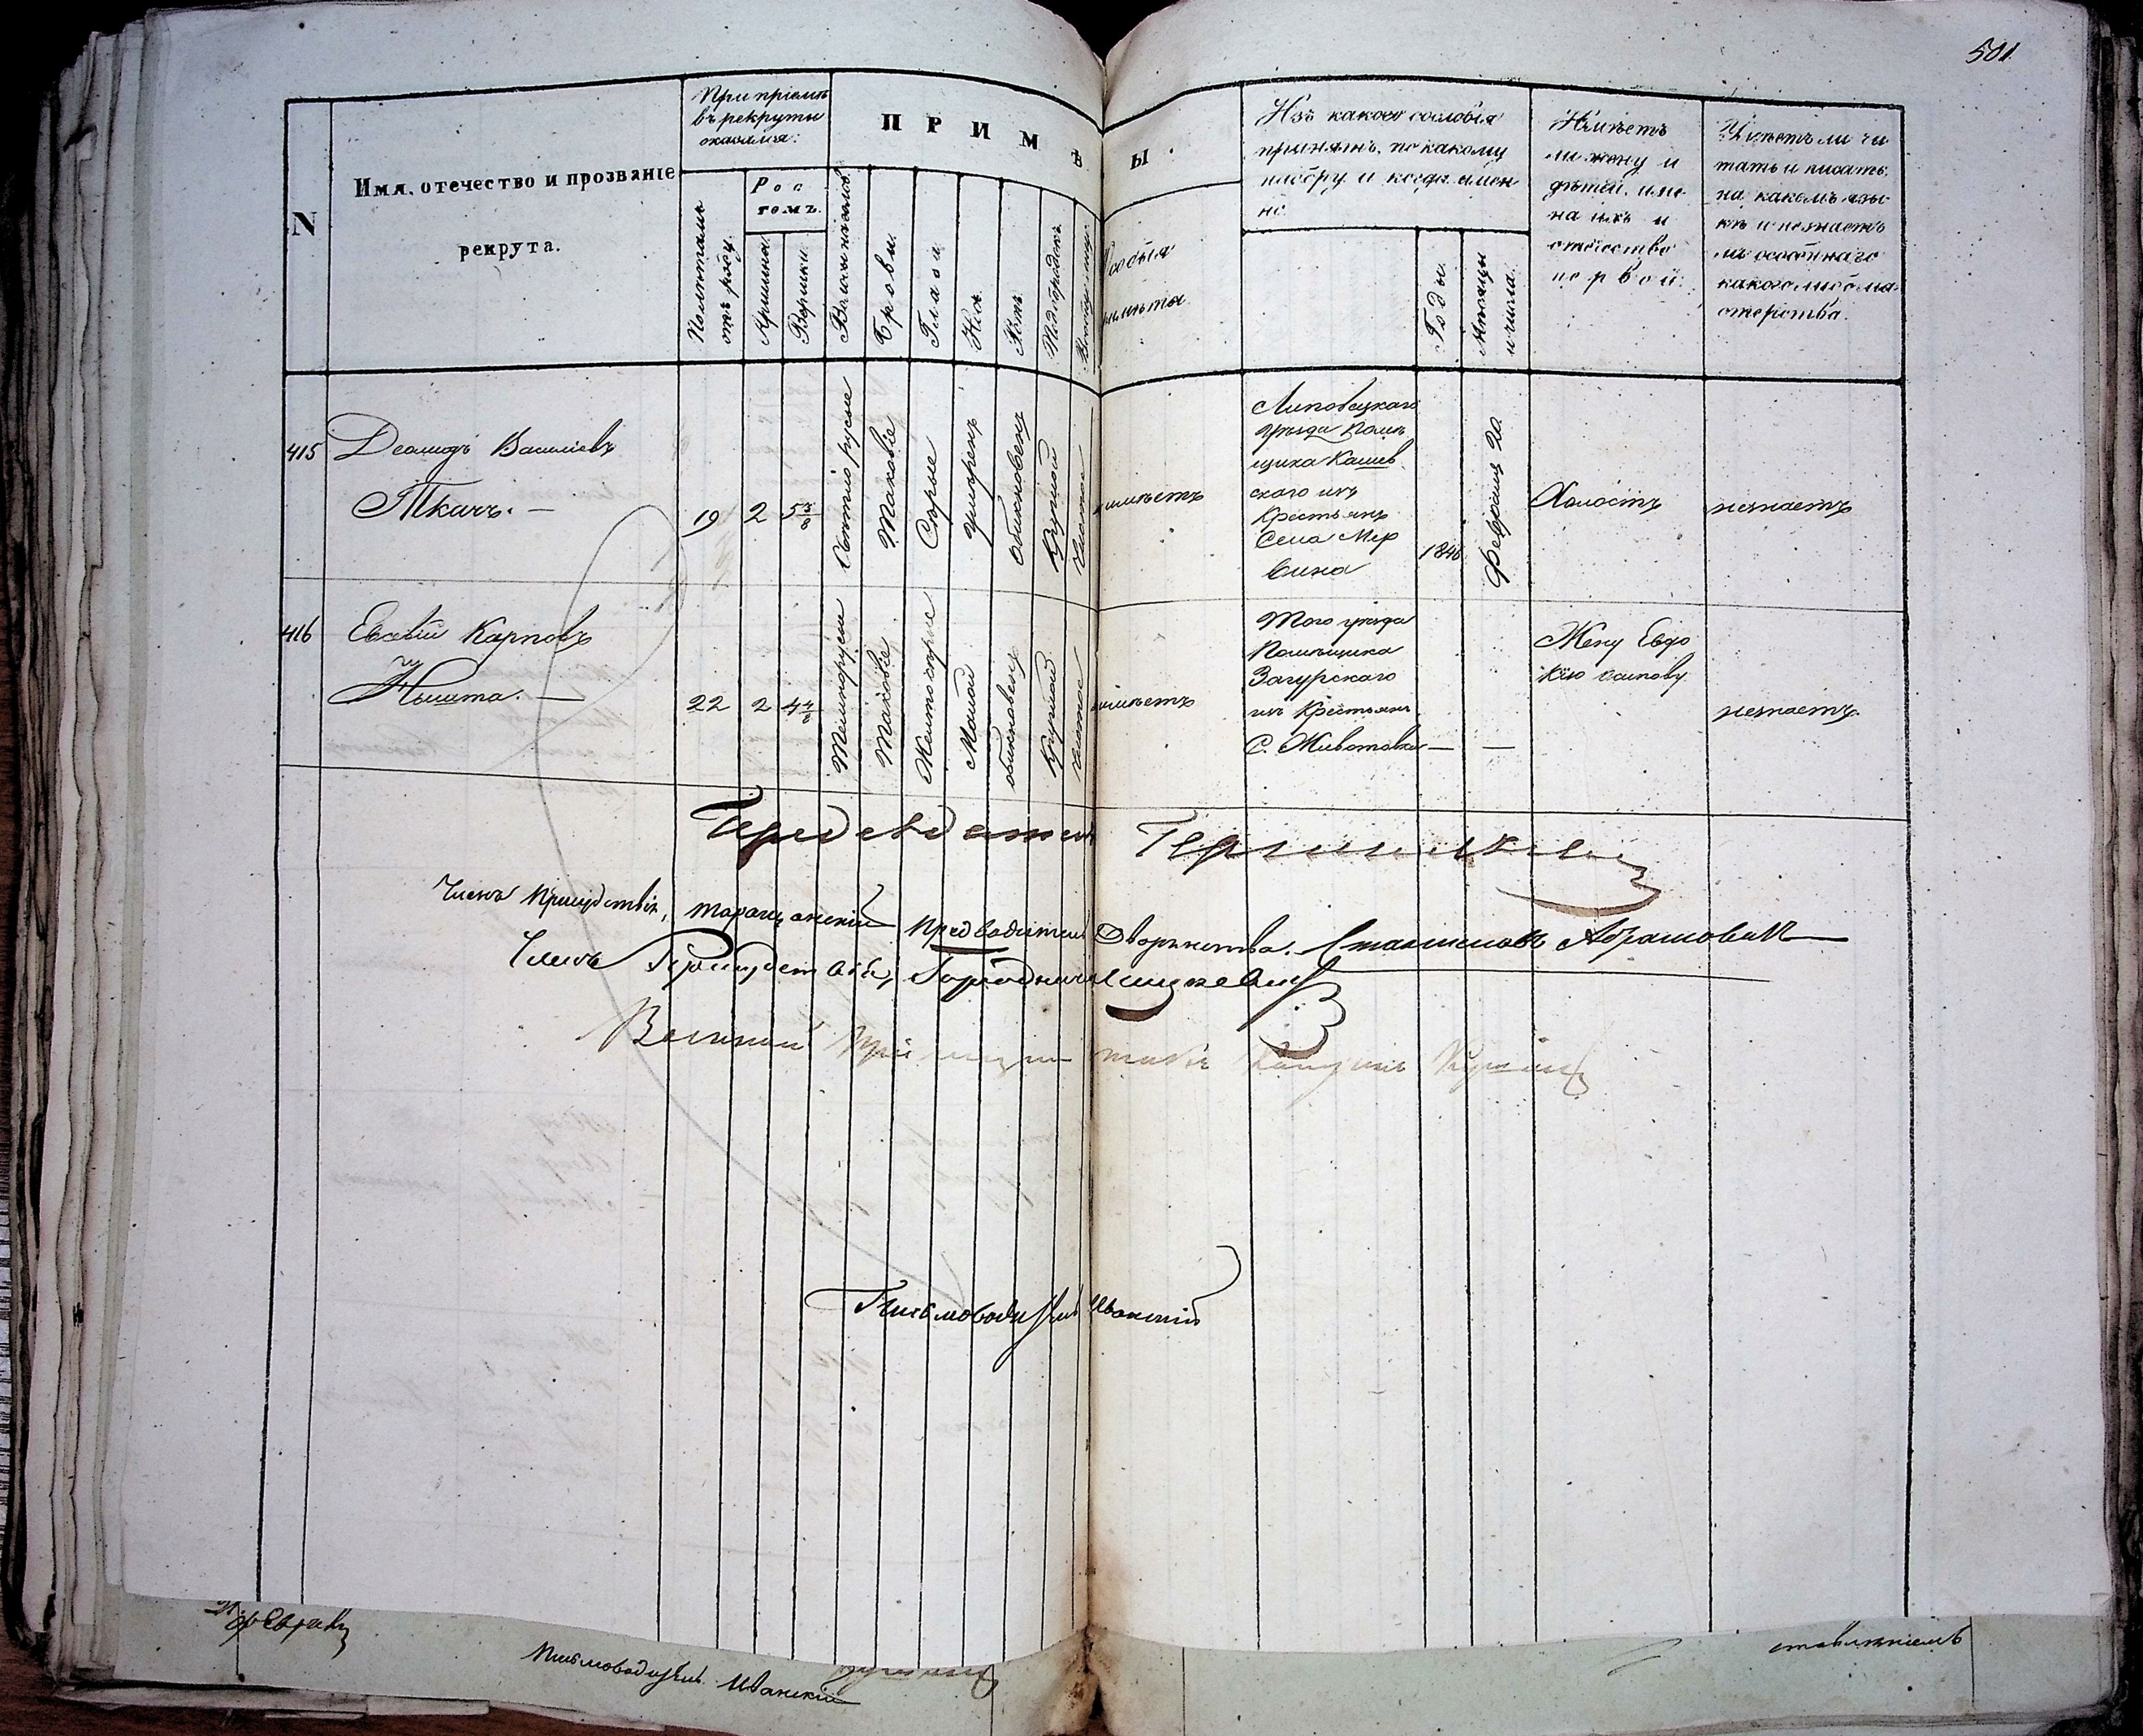 501.
N
Имя, отечество и прозванiе
рекрута.
При прiемѣ
въ рекруты
оказался:
Полѣтамъ
отъ роду.
Рос
томъ.
Аршина.
Вершки.
ПРИМѢ
Ы.
Волосы на головѣ
Брови.
Глаза
Носъ
Ротъ
Подбородокъ
Особыя
примѣты
Изъ какого сословiя
принятъ, по какому
набору и когда имен
но.
Годы.
Мѣсяцы
и числа.
Имѣетъ
ли жену и
дѣтей, име
на ихъ и
отчество
первой.
Умѣетъ ли чи
тать и писать,
на какомъ язы
кѣ и незнаетъ
ли особеннаго
какого либо ма
стерства.
415
Деомидъ Васильевъ
Ткачъ. —
19
2
5 3/8
Свѣтло русые
Таковiе
Сѣрые
Умѣренъ
Обыкновенъ
Круглой
Чистое
неимѣетъ
Липовецкаго
уѣзда Помѣ
щика Кашев
скаго изъ
Крестьянъ
Села Мер
вина
1846
Февраля 20
Холостъ
незнаетъ
416
Евсевiй Карповъ
22
2
4 4/8
Темнорусые
Таковiе
Желтосѣрые
Малой
обыкновенъ
Круглой
чистое
неимѣетъ
Того уѣзда
Помѣщика
Загурскаго
изъ Крестьянъ
С. Животовки — —
Жену Евдо
кiю
незнаетъ.
Предсѣдатель
Членъ Присудствiя, Таращанскiй Предводитель Дворянства. Станиславъ Абрамовичъ
Членъ Присудствiя, Городничiй
Военный
Письмоводитель Иванскiй
21 Февраля
Письмоводитель Иванскiй